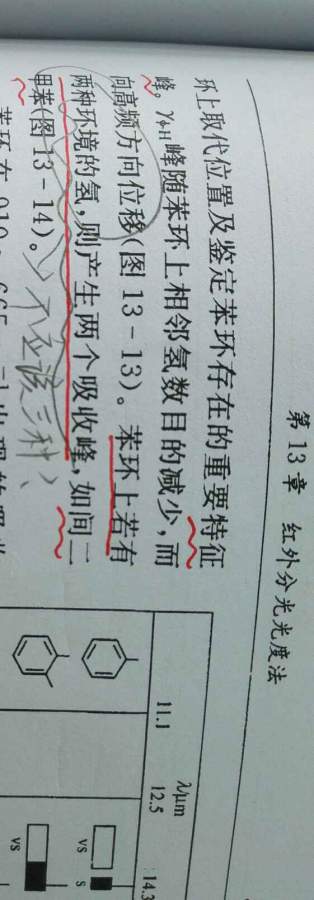 第 13 章 红外分光光度法
环上取代位置及鉴定苯环存在的重要特征
峰。γ=H 峰随苯环上相邻氢数目的减少,而
向高频方向位移(图 13-13)。苯环上若有
两种环境的氢,则产生两个吸收峰,如间二
甲苯(图 13-14)。 不应该三种
λ/μm
11.1 12.5 14.3
vs s
vs